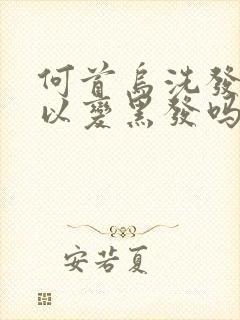 何首烏洗發
以變黑發嗎
安若夏